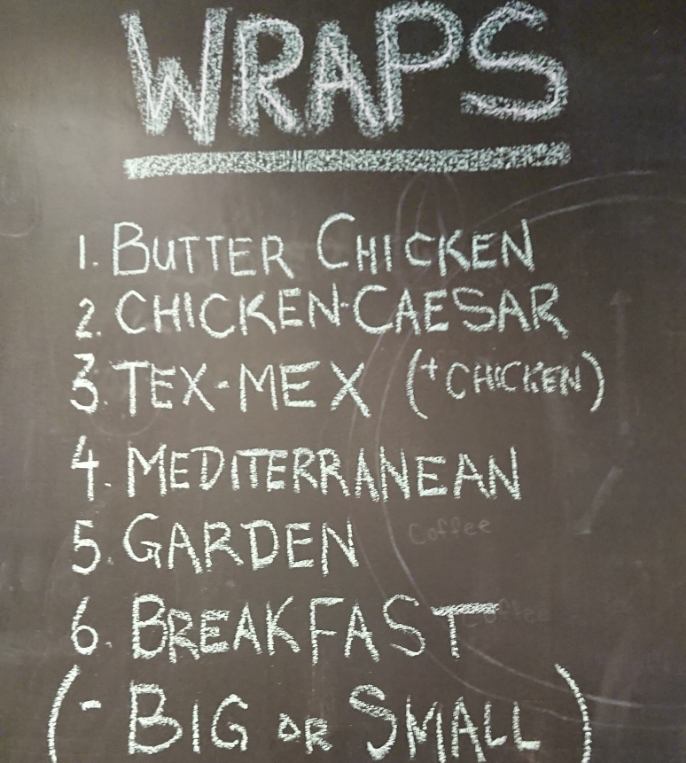 WRAPS
1. BUTTER CHICKEN
2. CHICKEN-CAESAR
3. TEX-MEX (+CHICKEN)
4. MEDITERRANEAN
5. GARDEN
Coffee
6. BREAKFAST
(- BIG OR SMALL)